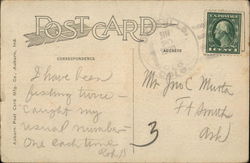 POST CARD
CORRESPONDENCE
ADDRESS
Auburn Post Card Mfg. Co., Auburn, Ind.
I have been
fishing twice –
caught my
usual number –
One each time
Mr Jno C
Ft Smith
Ark
3